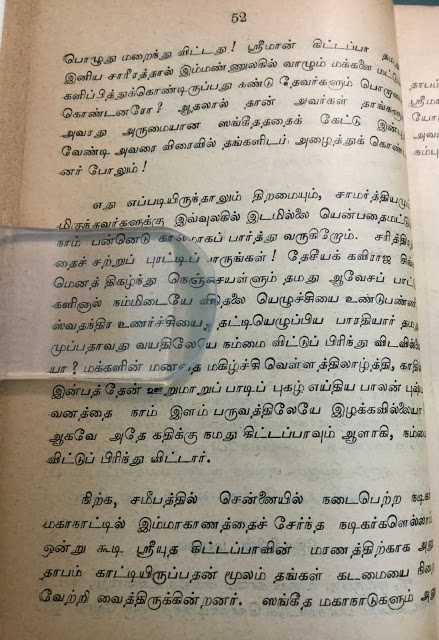 52
பொழுது மறைந்து விட்டது! ஸ்ரீமான் கிட்டப்பா தமது
இனிய சாரீரத்தால் இம்மண்ணுலகில் வாழும் மக்களை மட்டு
களிப்பித்துக்கொண்டிருப்பது கண்டு தேவர்களும் பொறாமை
கொண்டனரோ? ஆதலால் தான் அவர்கள் தாங்களு
அவரது அருமையான ஸங்கீதத்தைக் கேட்டு இன்பு
வேண்டி அவரை விரைவில் தங்களிடம் அழைத்துக் கொண்
னர் போலும்!
எது எப்படியிருந்தாலும் திறமையும், சாமர்த்தியமு
மிகுந்தவர்களுக்கு இவ்வுலகில் இடமில்லை யென்பதைமட்டு
நாம் பன்னெடு காலமாகப் பார்த்து வருகிறோம். சரித்திர
தைச் சற்றுப் புரட்டிப் பாருங்கள்! தேசியக் கவிராஜ
மெனத் திகழ்ந்து நெஞ்சையள்ளும் தமது ஆவேசப் பாட்
களினால் நம்மிடையே விடுதலை யெழுச்சியை உண்டுபண்ணி
ஸ்வதந்திர உணர்ச்சியைத் தட்டியெழுப்பிய பாரதியார் தம
முப்பதாவது வயதிலேயே நம்மை விட்டுப் பிரிந்து விடவில்லை
யா? மக்களின் மனதை மகிழ்ச்சி வெள்ளத்திலாழ்த்தி, காதி
இன்பத் தேன் ஊறுமாறுப் பாடிப் புகழ் எய்திய பாலன் புஷ்ப
வனத்தை நாம் இளம் பருவத்திலேயே இழக்கவில்லையா
ஆகவே அதே கதிக்கு நமது கிட்டப்பாவும் ஆளாகி, நம்மை
விட்டுப் பிரிந்து விட்டார்.
நிற்க, சமீபத்தில் சென்னையில் நடைபெற்ற நடிக
மகாநாட்டில் இம்மாகாணத்தைச் சேர்ந்த நடிகர்களெல்லாம்
ஒன்று கூடி ஸ்ரீயுத கிட்டப்பாவின் மரணத்திற்காக அனு
தாபம் காட்டியிருப்பதன் மூலம் தங்கள் கடமையை நிறை
வேற்றி வைத்திருக்கின்றனர். ஸங்கீத மகாநாடுகளும் அனு